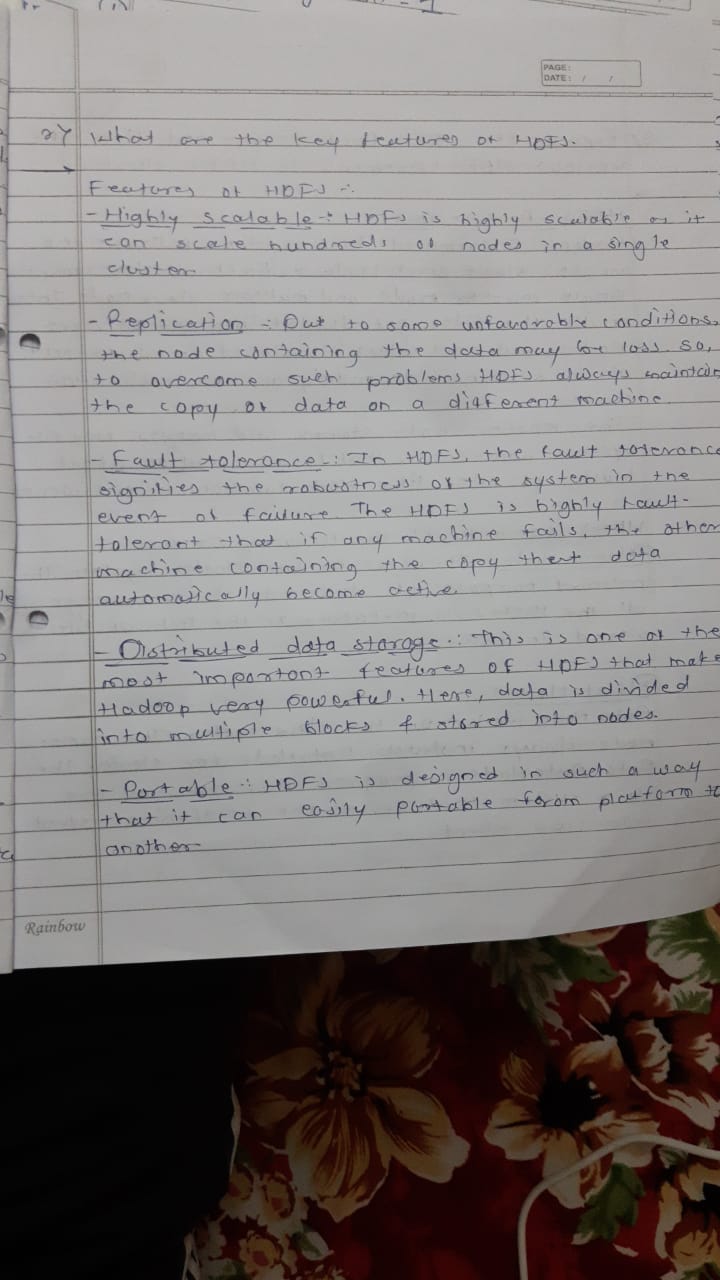 PAGE:
DATE: / /
2) What are the key features of HDFS.
Features of HDFS :-
- Highly scalable :- HDFS is highly scalable as it
can scale hundreds of nodes in a single
cluster.
- Replication :- Due to some unfavorable conditions,
the node containing the data may be loss. So,
to overcome such problems, HDFS always maintain
the copy of data on a different machine.
- Fault tolerance :- In HDFS, the fault tolerance
signifies the robustness of the system in the
event of failure. The HDFS is highly fault-
tolerant that if any machine fails, the other
machine containing the copy that data
automatically become active.
- Distributed data storage :- This is one of the
most important features of HDFS that make
Hadoop very powerful. Here, data is divided
into multiple blocks & stored into nodes.
- Portable :- HDFS is designed in such a way
that it can easily portable from platform to
another
Rainbow